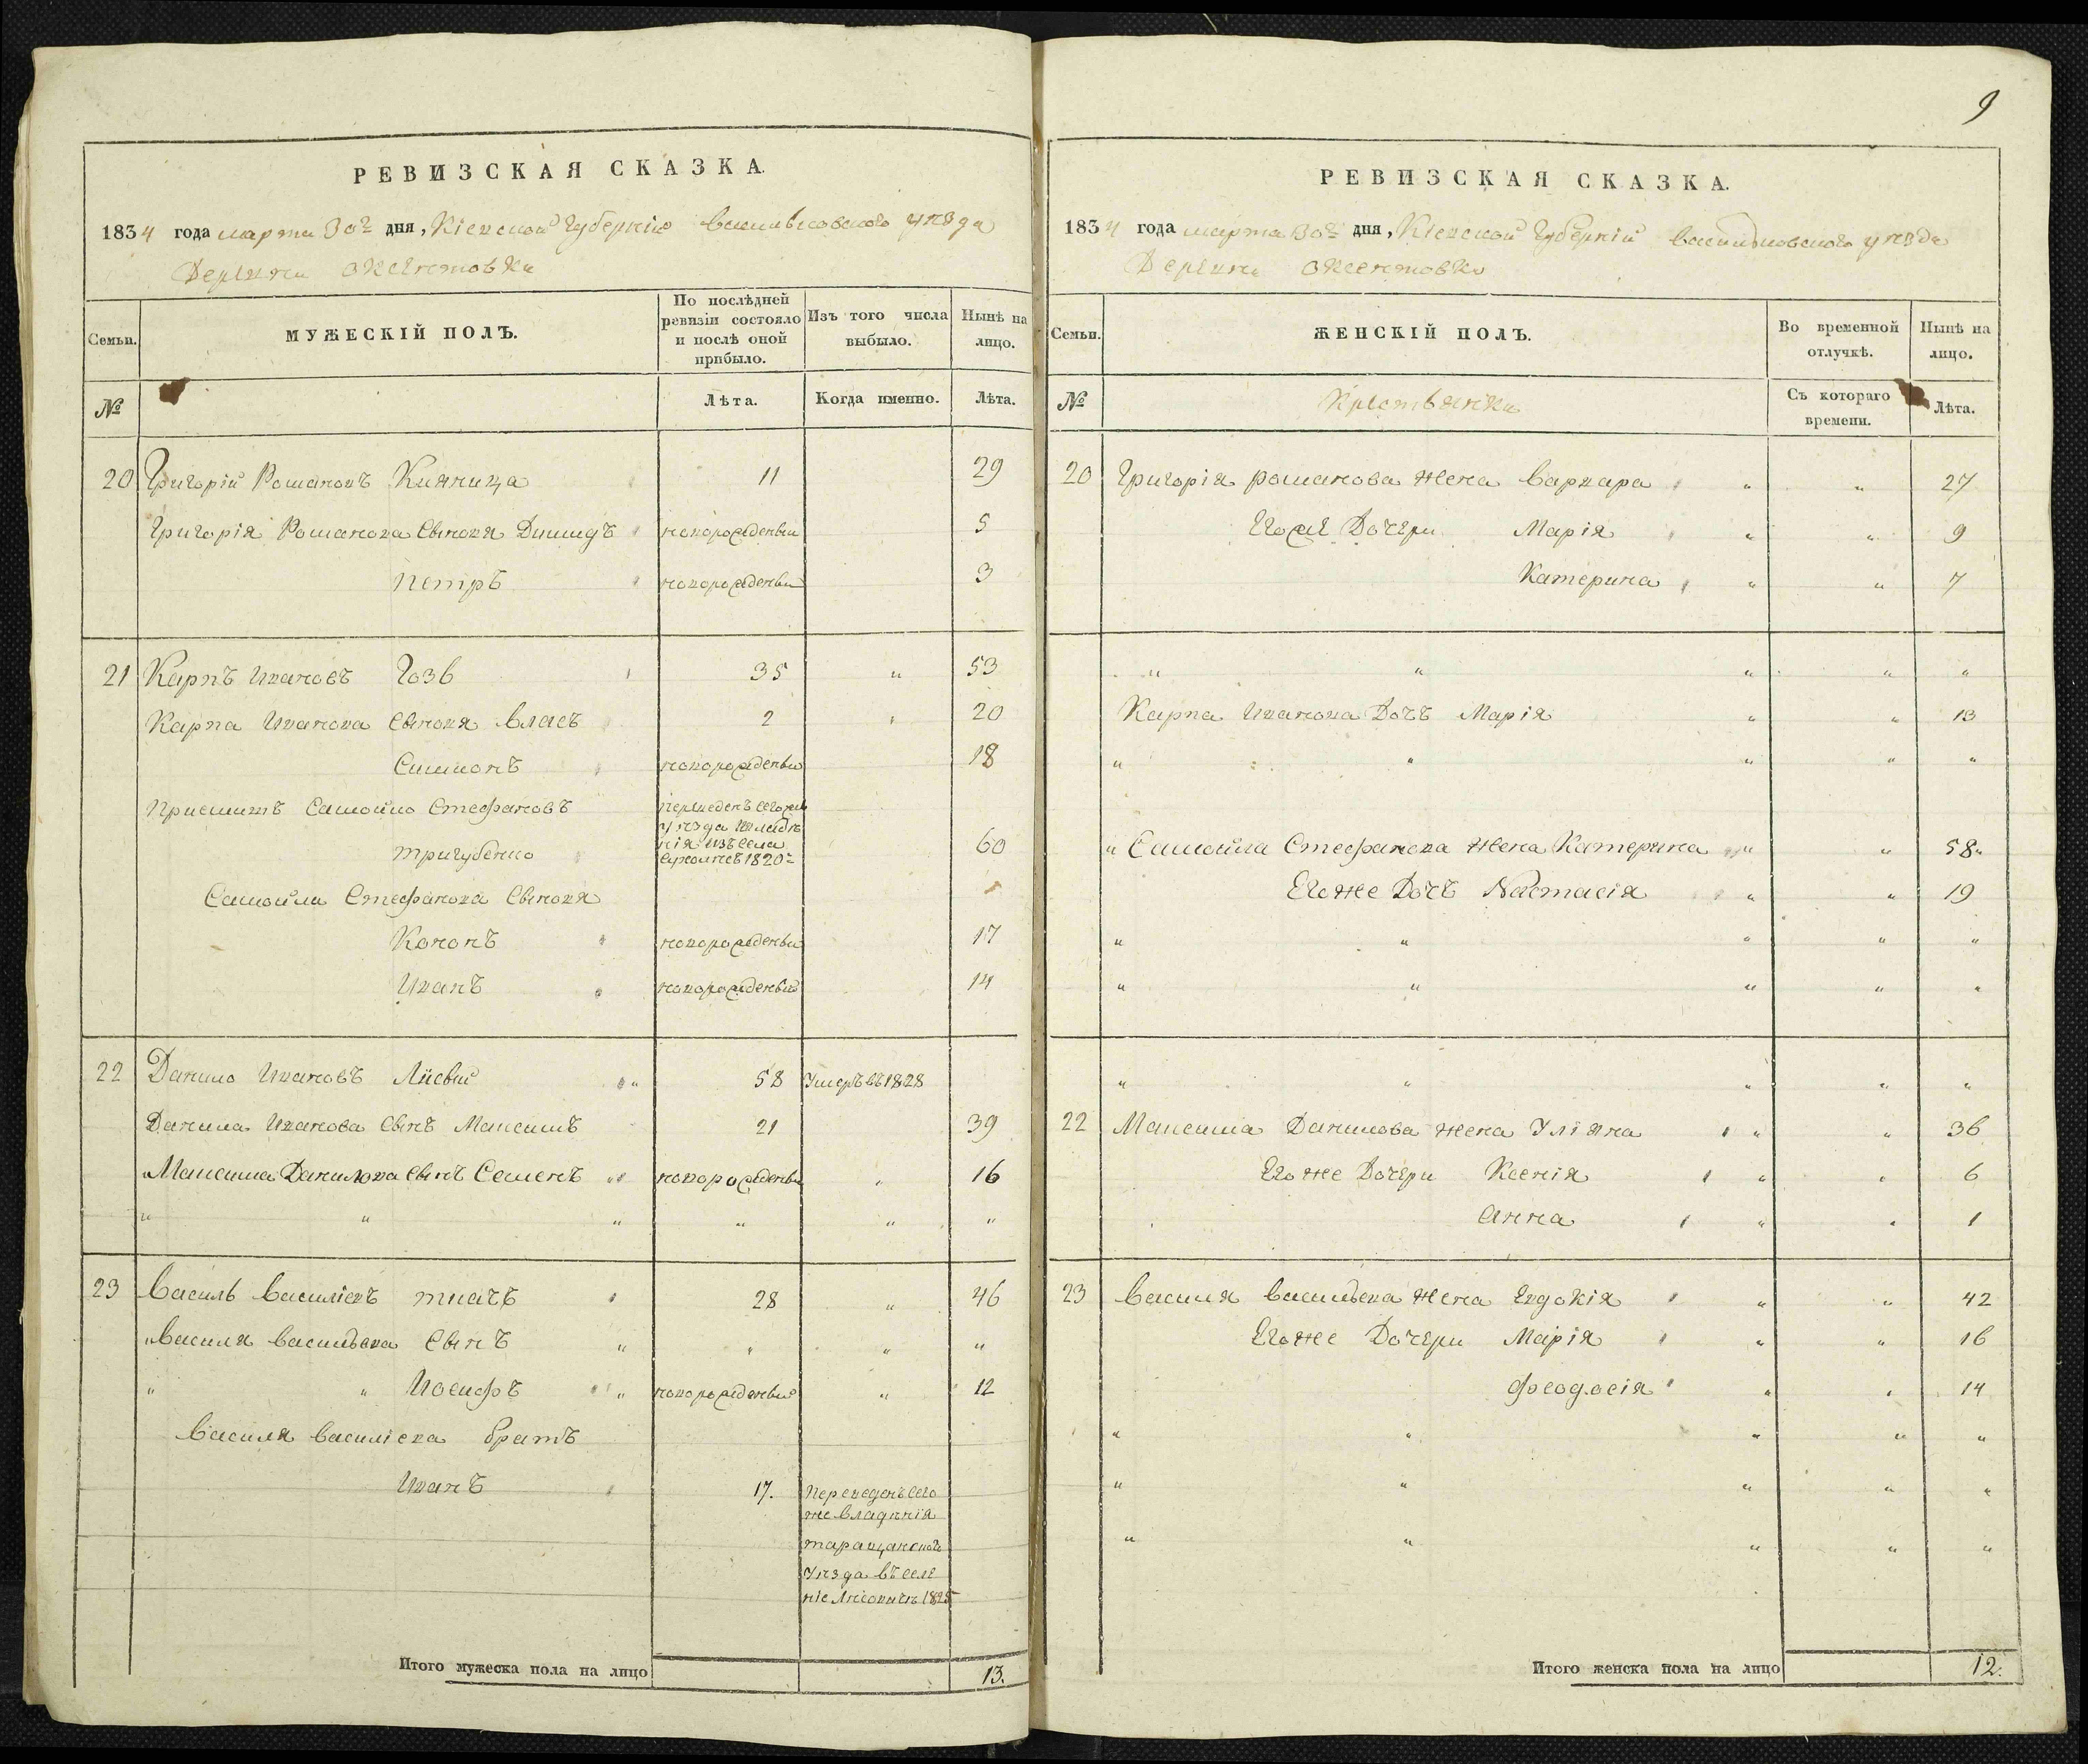 9
РЕВИЗСКАЯ СКАЗКА.
1834 года марта 30го дня, Кіевской Губерніи Васильковского уѣзда
Деревни Оксентовки
Семьи.
МУЖЕСКІЙ ПОЛЪ.
По послѣдней ревизіи состояло и послѣ оной прибыло.
Изъ того числа выбыло.
Нынѣ на лицо.
№
Лѣта.
Когда именно.
Лѣта.
20 Григорій Романовъ Княница 11 29
Григорія Романова Сыновя Димидъ новорожденны 5
Петръ новорожденны 3
21 Карпъ Ивановъ Гозь 35 " 53
Карпа Иванова Сыновя Власъ 2 " 20
Симионъ новорожденны 18
Приємитъ Самойло Стефановъ переведенъ сегоже
уѣзда владѣ
нія изъ села
Тригубенко 1820го 60
Самойла Стефанова Сыновя
Кононъ новорожденны 17
Иванъ новорожденны 14
22 Данило Ивановъ Лисый " 58 Умеръ въ 1828
Данила Иванова Сынъ Максимъ 21 39
Максима Данилова Сынъ Семенъ " новорожденны " 16
" " " " " "
23 Василь Василіевъ Ткачъ 28 " 46
"Василя Васильева Сынъ " " " "
" " Иосифъ " новорожденны " 12
Василя Василіева братъ
Иванъ 17. Переведенъ сего
же владѣнія
таращанского
Уѣзда въ селе
ніе Лисовичѣ 1825
Итого мужеска пола на лицо 13.
РЕВИЗСКАЯ СКАЗКА.
1834 года марта 30го дня, Кіевской Губерніи Васильковского уѣзда
Деревни Оксентовки
Семьи.
ЖЕНСКІЙ ПОЛЪ.
Во временной отлучкѣ.
Нынѣ на лицо.
№
Крестьянки
Съ котораго времени.
Лѣта.
20 Григорія Романова жена Варвара " " 27
Егоже Дочери Марія " " 9
Катерина " " 7
" " " " "
Карпа Иванова Дочъ Марія " " 13
" " " " "
" Самойла Стефанова жена Катерина " " 58"
Егоже Дочъ Настасія " " 19
" " " " "
" " " " "
" " " " "
22 Максима Данилова жена Уліяна " " 36
Егоже Дочери Ксенія " " 6
Анна " " 1
23 Василя Васильева жена Евдокія " " 42
Егоже Дочери Марія " " 16
Феодосія " " 14
" " " " "
" " " " "
" " " " "
Итого женска пола на лицо 12.